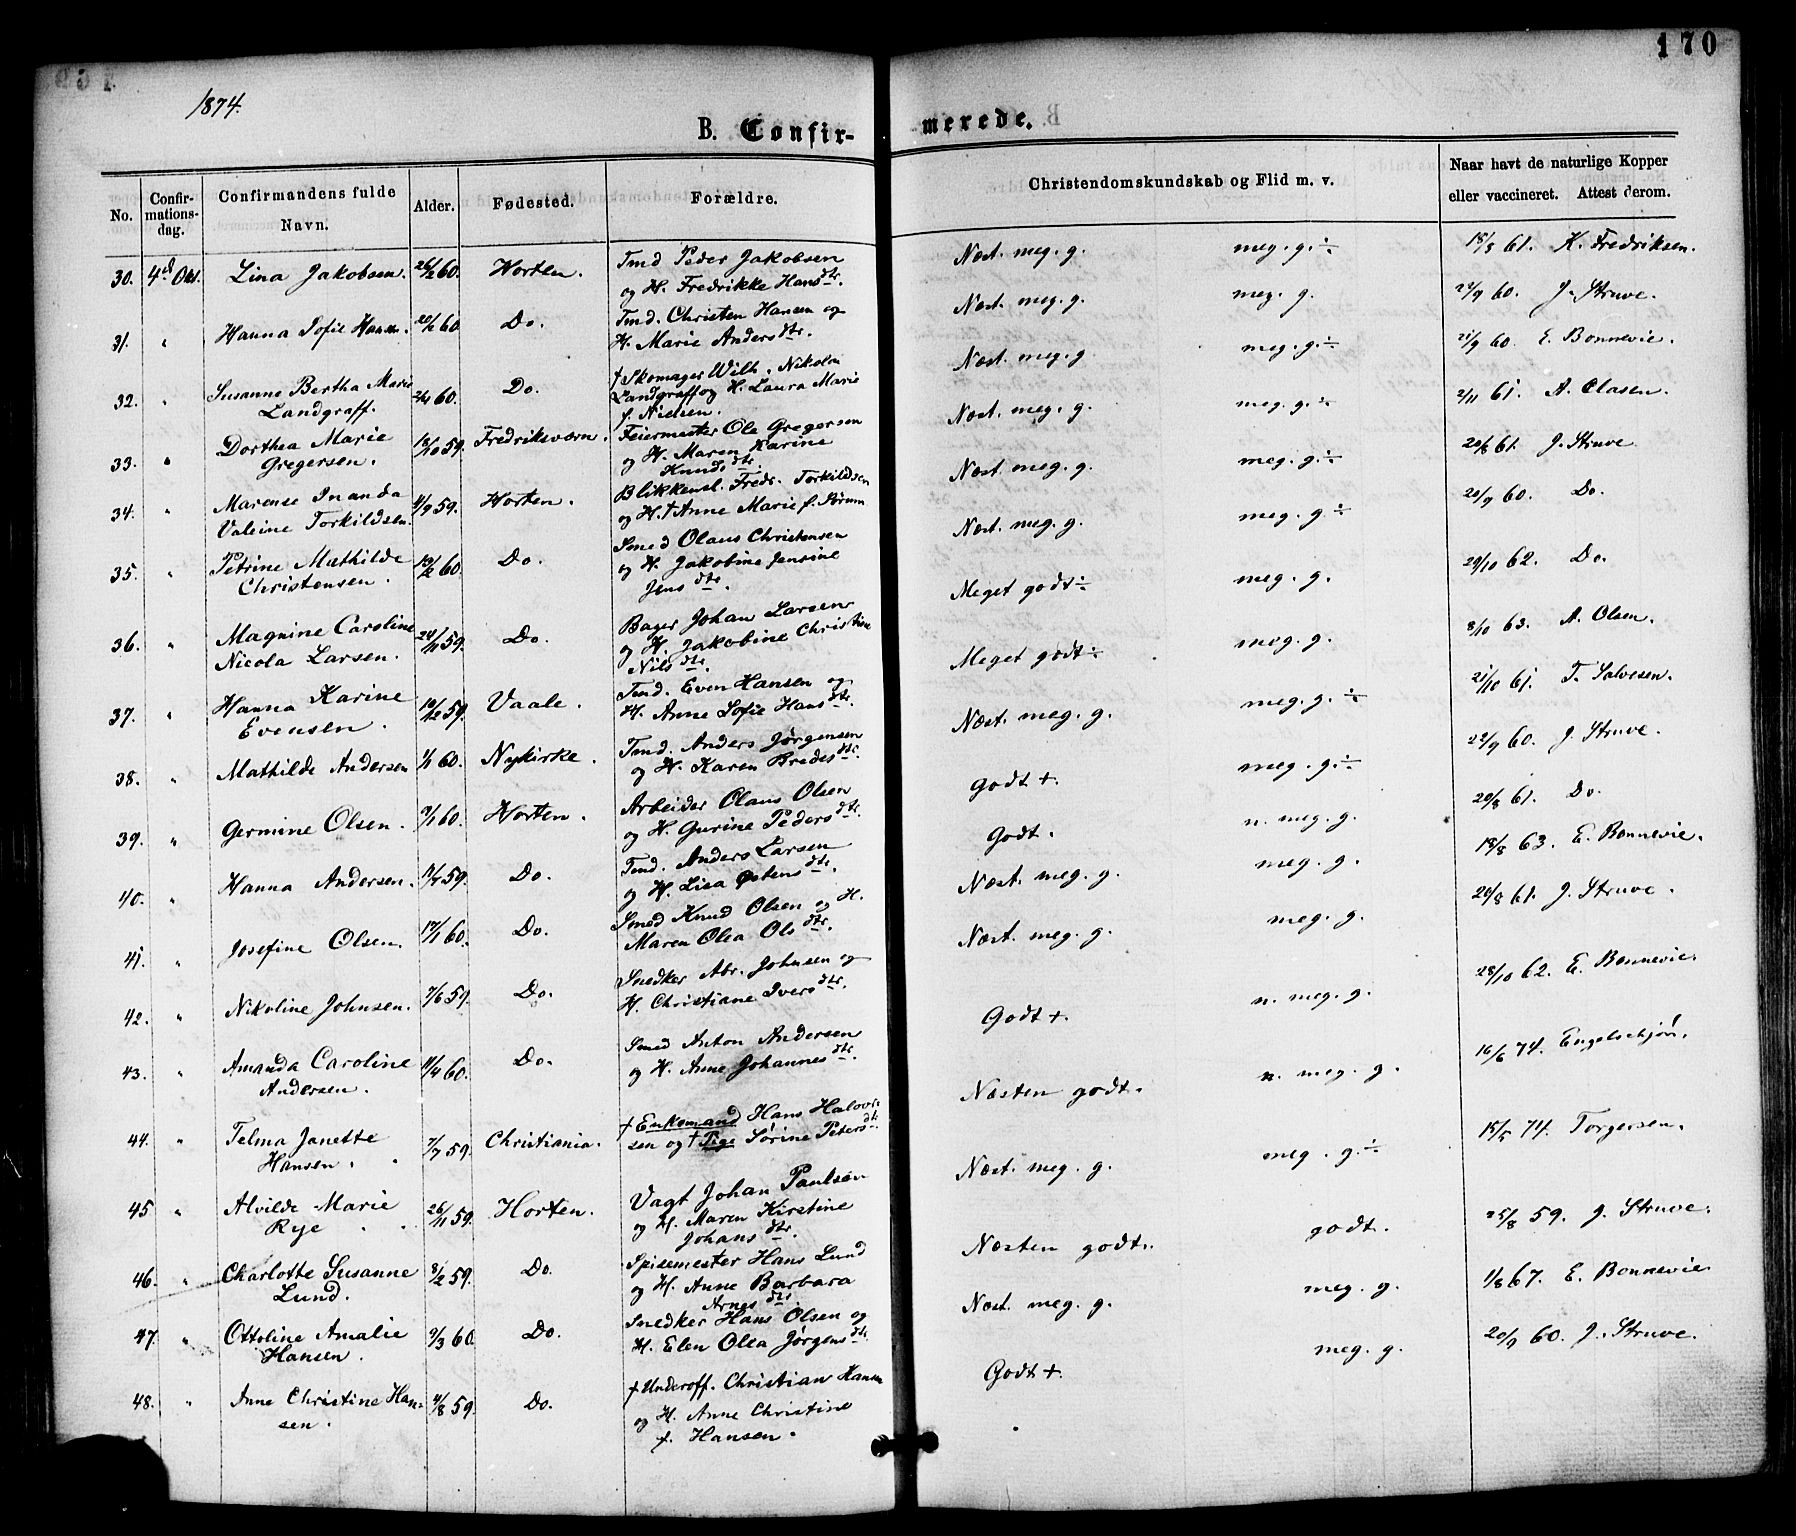 170
1874.
B. Confir-
merede.
No.
Confir-
mations-
dag.
Confirmandens fulde
Navn.
Alder.
Fødested.
Forældre.
Christendomskundskab og Flid m. v.
Naar havt de naturlige Kopper
eller vaccineret. Attest derom.
30. 4d Okt. Lina Jakobsen. 26/2 60. Horten. Tmd Peder Jakobsen
og H. Fredrikke Hansdtr.
Næst. meg. g. meg. g.÷ 18/8 61. K. Fredriksen.
31. " Hanna Sofie Hansen. 20/1 60. Do. Tmd. Christen Hansen og
H. Marie Andersdtr.
Næst. meg. g. meg. g. 22/9 60. J. Struve.
32. " Susanne Bertha Marie
Landgraff. 2/4 60. Do. † Skomager Wilh. Nikolai
Landgraff og H. Laura Marie
f. Nielsen.
Næst. meg. g. meg. g.÷ 21/9 60. E. Bonnevie.
33. " Dorthea Marie
Gregersen. 18/10 59. Fredriksværn. Feiermester Ole Gregersen
og H. Maren Karine
Knudsdtr.
Næst. meg. g. meg. g.÷ 2/11 61. A. Olasen.
34. " Marense Inanda
Valeine Torkildsen. 11/9 59. Horten. Blikkensl. Fredr. Torkildsen
og H. † Anne Marie f. Sørum
Næst. meg. g. meg. g.÷ 20/8 61. J. Struve
35. " Petrine Mathilde
Christensen. 19/2 60. Do. Smed Olaus Christensen
og H. Jakobine Jensine
Jensdtr.
Næst. meg. g. meg. g.÷ 20/9 60. Do.
36. " Magnine Caroline
Nicola Larsen. 24/11 59. Do. Bager Johan Larsen
og H. Jakobine Christine
Nilsdtr.
Meget godt÷ meg. g. 29/10 62. Do.
37. " Hanna Karine
Evensen. 10/12 59. Vaale. Tmd. Even Hansen og
H. Anne Sofie Hansdtr.
Meget godt÷ meg. g. 8/10 63. A. Olsen.
38. " Mathilde Andersen 1/1 60. Nykirke. Tmd. Anders Jørgensen
og H. Karen Bredesdtr.
Næst. meg. g. meg. g.÷ 21/10 61. T. Salvesen.
39. " Germine Olsen. 9/1 60. Horten. Arbeider Olaus Olsen
og H. Gurine Pedersdtr.
Godt +. meg. g.÷ 22/9 60. J. Struve.
40. " Hanna Andersen. 11/7 59. Do. Tmd. Anders Larsen
og H. Lisa Østensdtr.
Godt. n. meg. g. 20/8 61. Do.
41. " Josefine Olsen. 17/1 60. Do. Smed Knud Olsen og H.
Maren Olea Olsdtr.
Næst. meg. g. meg. g. 18/8 63. E. Bonnevie.
42. " Nikoline Johnsen. 7/6 59. Do. Snedker Abr. Johnsen og
H. Christiane Iversdtr.
Næst. meg. g. meg. g. 20/8 61. J. Struve.
43. " Amanda Caroline
Andersen. 11/4 60. Do. Smed Anton Andersen
og H. Anne Johannesdtr.
Godt +. n. meg. g. 28/10 62. E. Bonnevie.
44. " Telma Janette
Hansen. 7/7 59. Christiania. † Enkemand Hans Halvor-
sen og † Pige Sørine Petersdtr.
Næsten godt. n. meg. g. 16/6 74. Engelschjøn.
45 " Alvilde Marie
Rye 26/11 59. Horten. Vagt Johan Paulsen
og H. Maren Kirstine
Johansdtr.
Næst. meg. g. meg. g.÷ 15/5 74. Torgersen.
46. " Charlotte Susanne
Lund. 8/2 59. Do. Spisemester Hans Lund
og H. Anne Barbara
Arnesdtr
Næsten godt. godt. 25/8 59. J. Struve.
47. " Ottoline Amalie
Hansen. 9/3 60. Do. Snedker Hans Olsen og
H. Elen Olea Jørgensdtr.
Næst. meg. g. meg. g. 1/8 67. E. Bonnevie
48. " Anne Christine Han-
sen. 4/8 59. Do. † Underoff. Christian Hansen
og H. Anne Christine
f. Hansen.
Godt +. meg. g. 20/9 60. J. Struve.